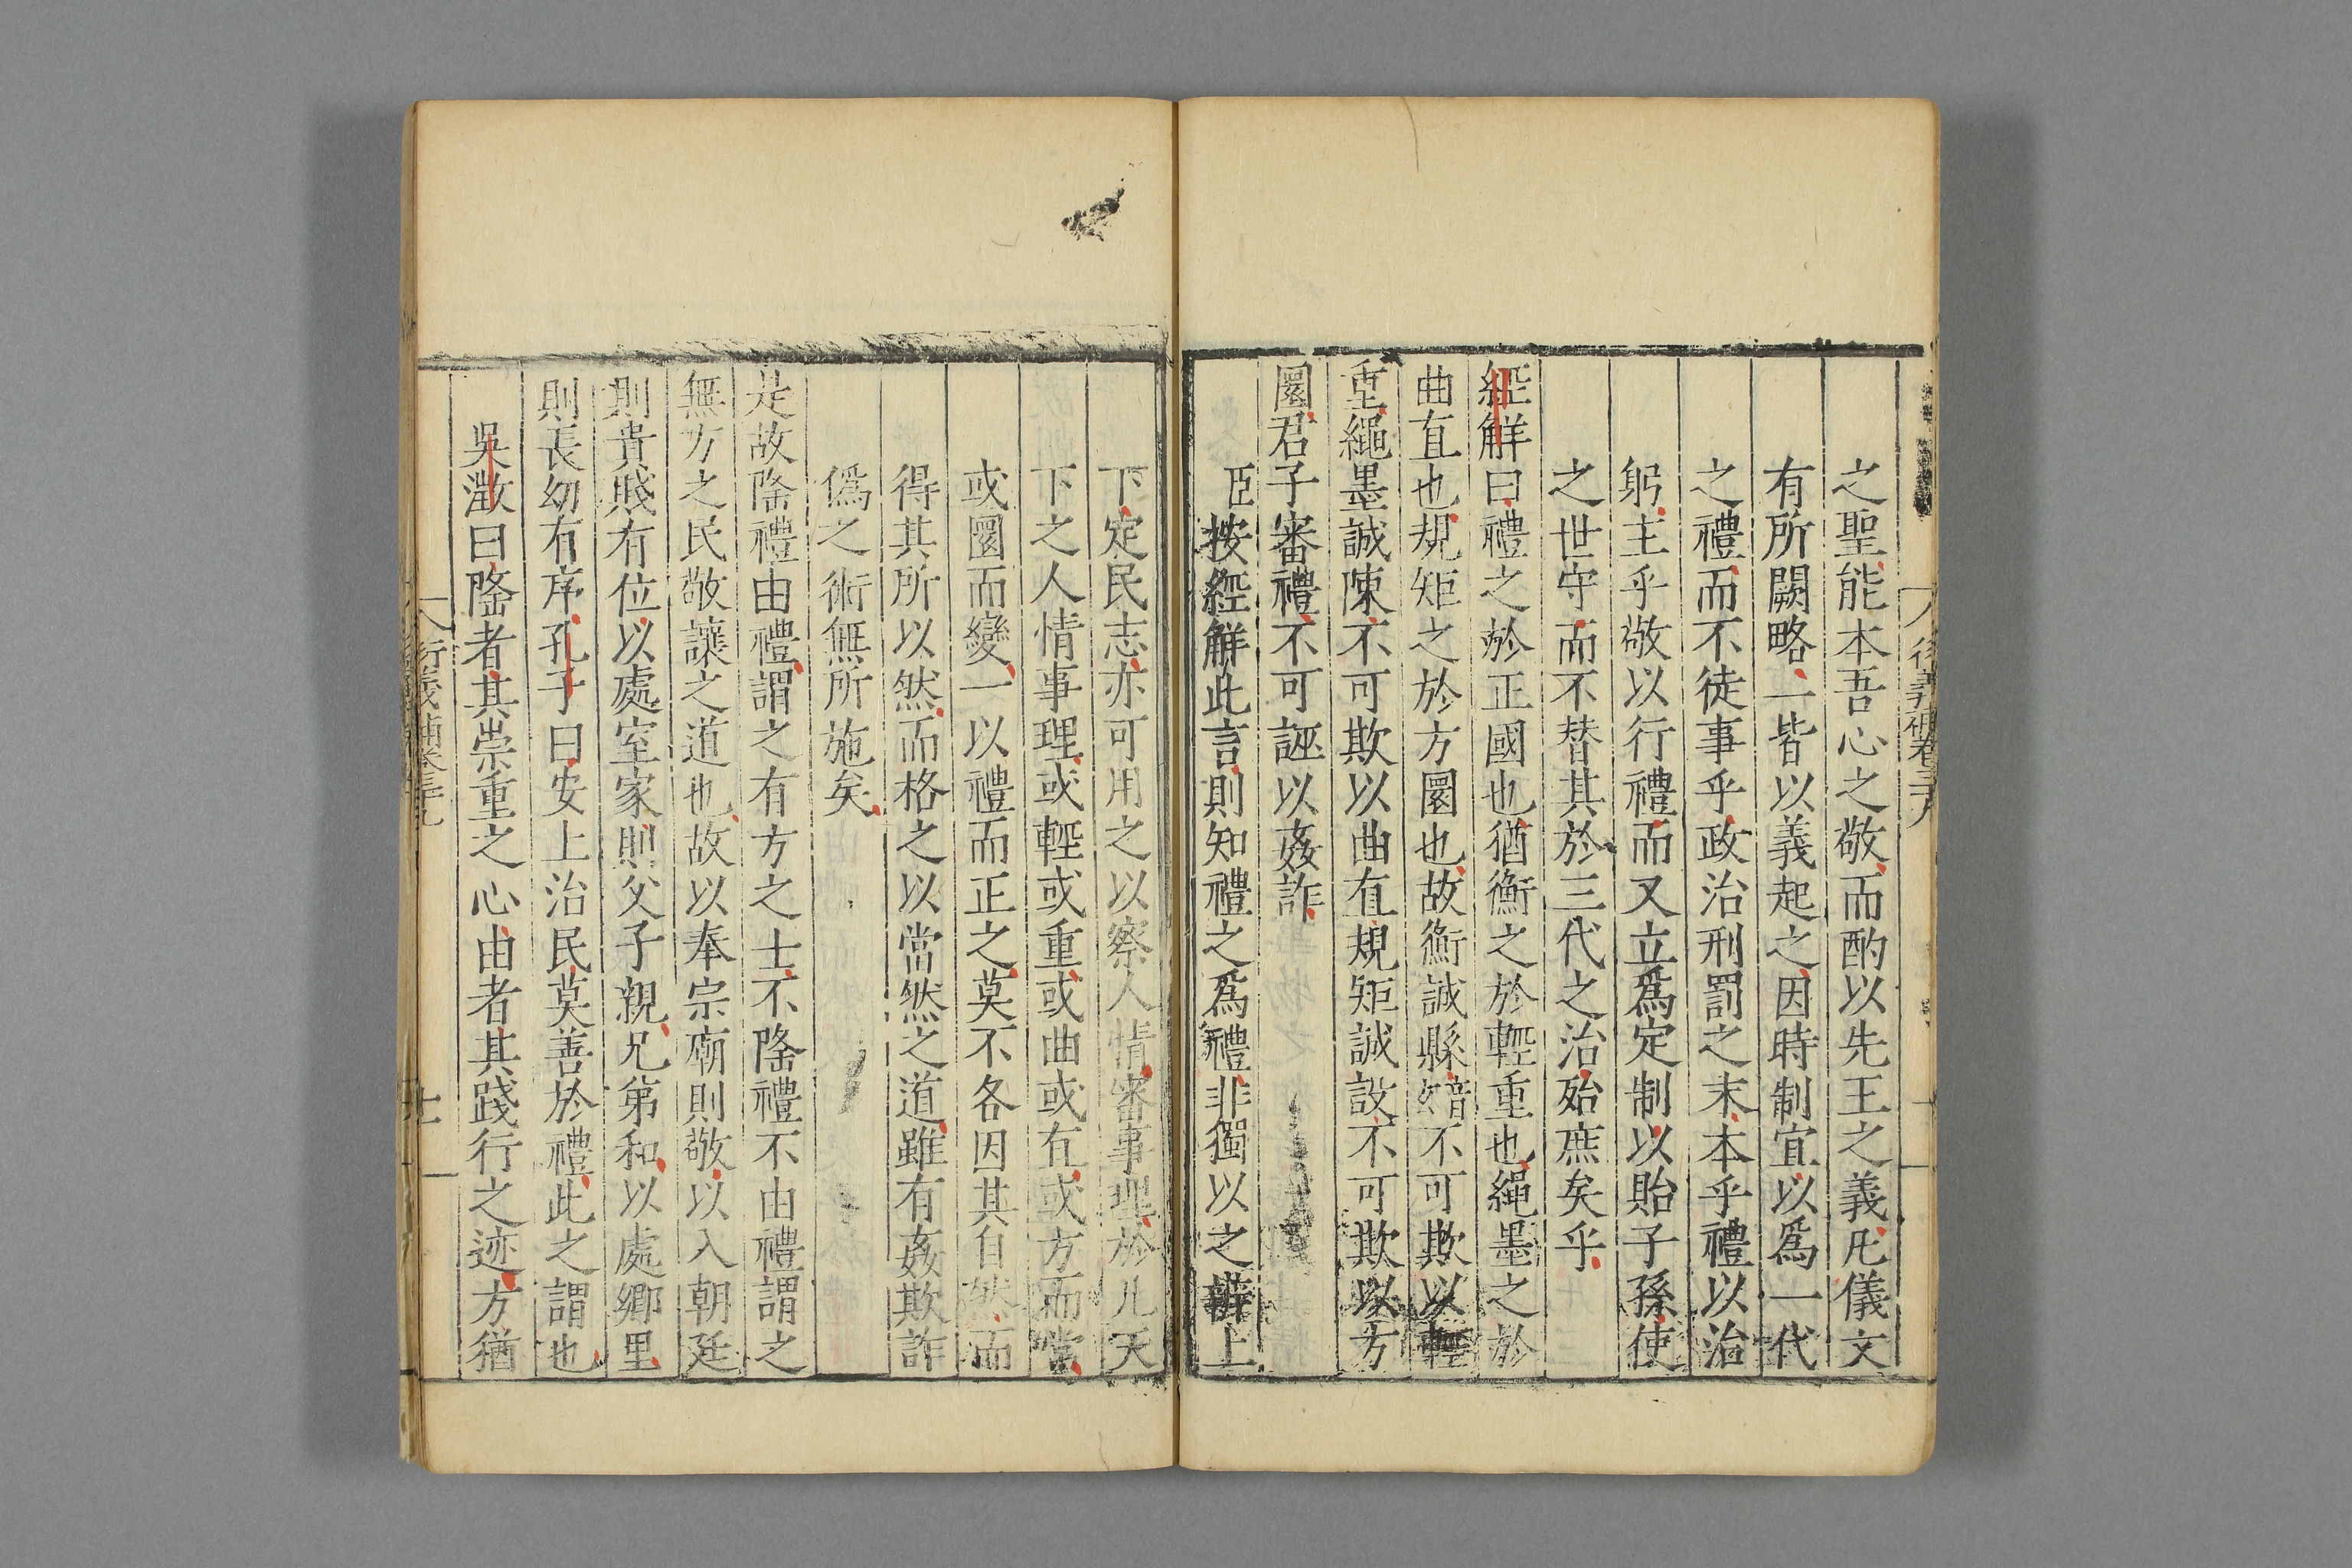 之聖能本吾心之敬而酌以先王之義凡儀文
有所闕略一皆以義起之因時制宜以爲一代
之禮而不徒事乎政治刑罰之末本乎禮以治
躬主乎敬以行禮而又立爲定制以貽子孫使
之世守而不替其於三代之治殆庶矣乎
經解曰禮之於正國也猶衡之於輕重也繩墨之於
曲直也規矩之於方圜也故衡誠縣不可欺以輕
重繩墨誠陳不可欺以曲直規矩誠設不可欺以方
圜君子審禮不可誣以姦詐
臣按經解此言則知禮之爲禮非獨以之辨上
下定民志亦可用之以察人情審事理於凡天
下之人情事理或輕或重或曲或直或方而當
或圜而變一以禮而正之莫不各因其自然而
得其所以然而格之以當然之道雖有姦欺詐
僞之術無所施矣
是故隆禮由禮謂之有方之士不隆禮不由禮謂之
無方之民敬讓之道也故以奉宗廟則敬以入朝廷
則貴賤有位以處室家則父子親兄弟和以處鄉里
則長幼有序孔子曰安上治民莫善於禮此之謂也
吳澂曰隆者其崇重之心由者其踐行之迹方猶